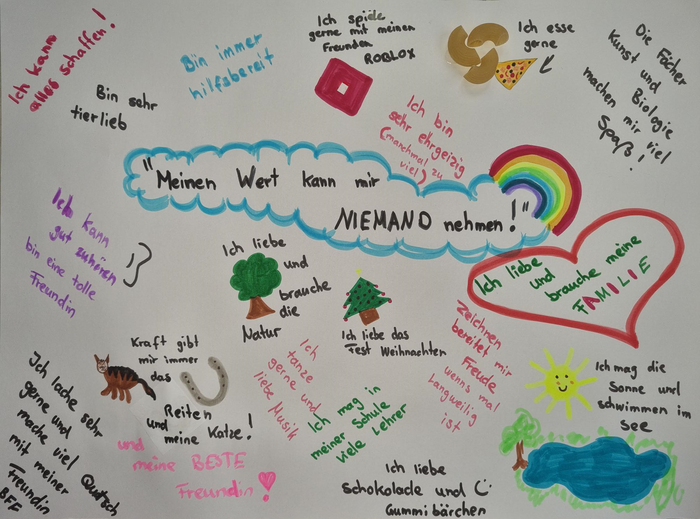 Ich kann
alles schaffen!
Bin immer
hilfsbereit
Ich spiele
gerne mit meinen
Freunden
ROBLOX
Ich esse
gerne
Die Fächer
Kunst und
Biologie
machen mir viel
Spaß!
Bin sehr
tierlieb
Ich bin
sehr ehrgeizig
(manchmal zu
viel)
"Meinen Wert kann mir
NIEMAND nehmen!"
Ich kann
gut zuhören
bin eine tolle
Freundin
Ich liebe
und
brauche
die
Natur
Ich liebe
und
brauche meine
FAMILIE
Ich liebe das
Fest Weihnachten
Zeichnen
bereitet mir
Freude
wenns mal
Langweilig
ist
Kraft gibt
mir immer
das
Reiten
und meine Katze!
und
meine BESTE
Freundin!
Ich
tanze
gerne und
liebe Musik
Ich mag in
meiner Schule
viele Lehrer
Ich mag die
Sonne und
schwimmen im
See
Ich lache sehr
gerne und
mache viel Quatsch
mit meiner
Freundin
BFF
Ich liebe
Schokolade und
Gummibärchen